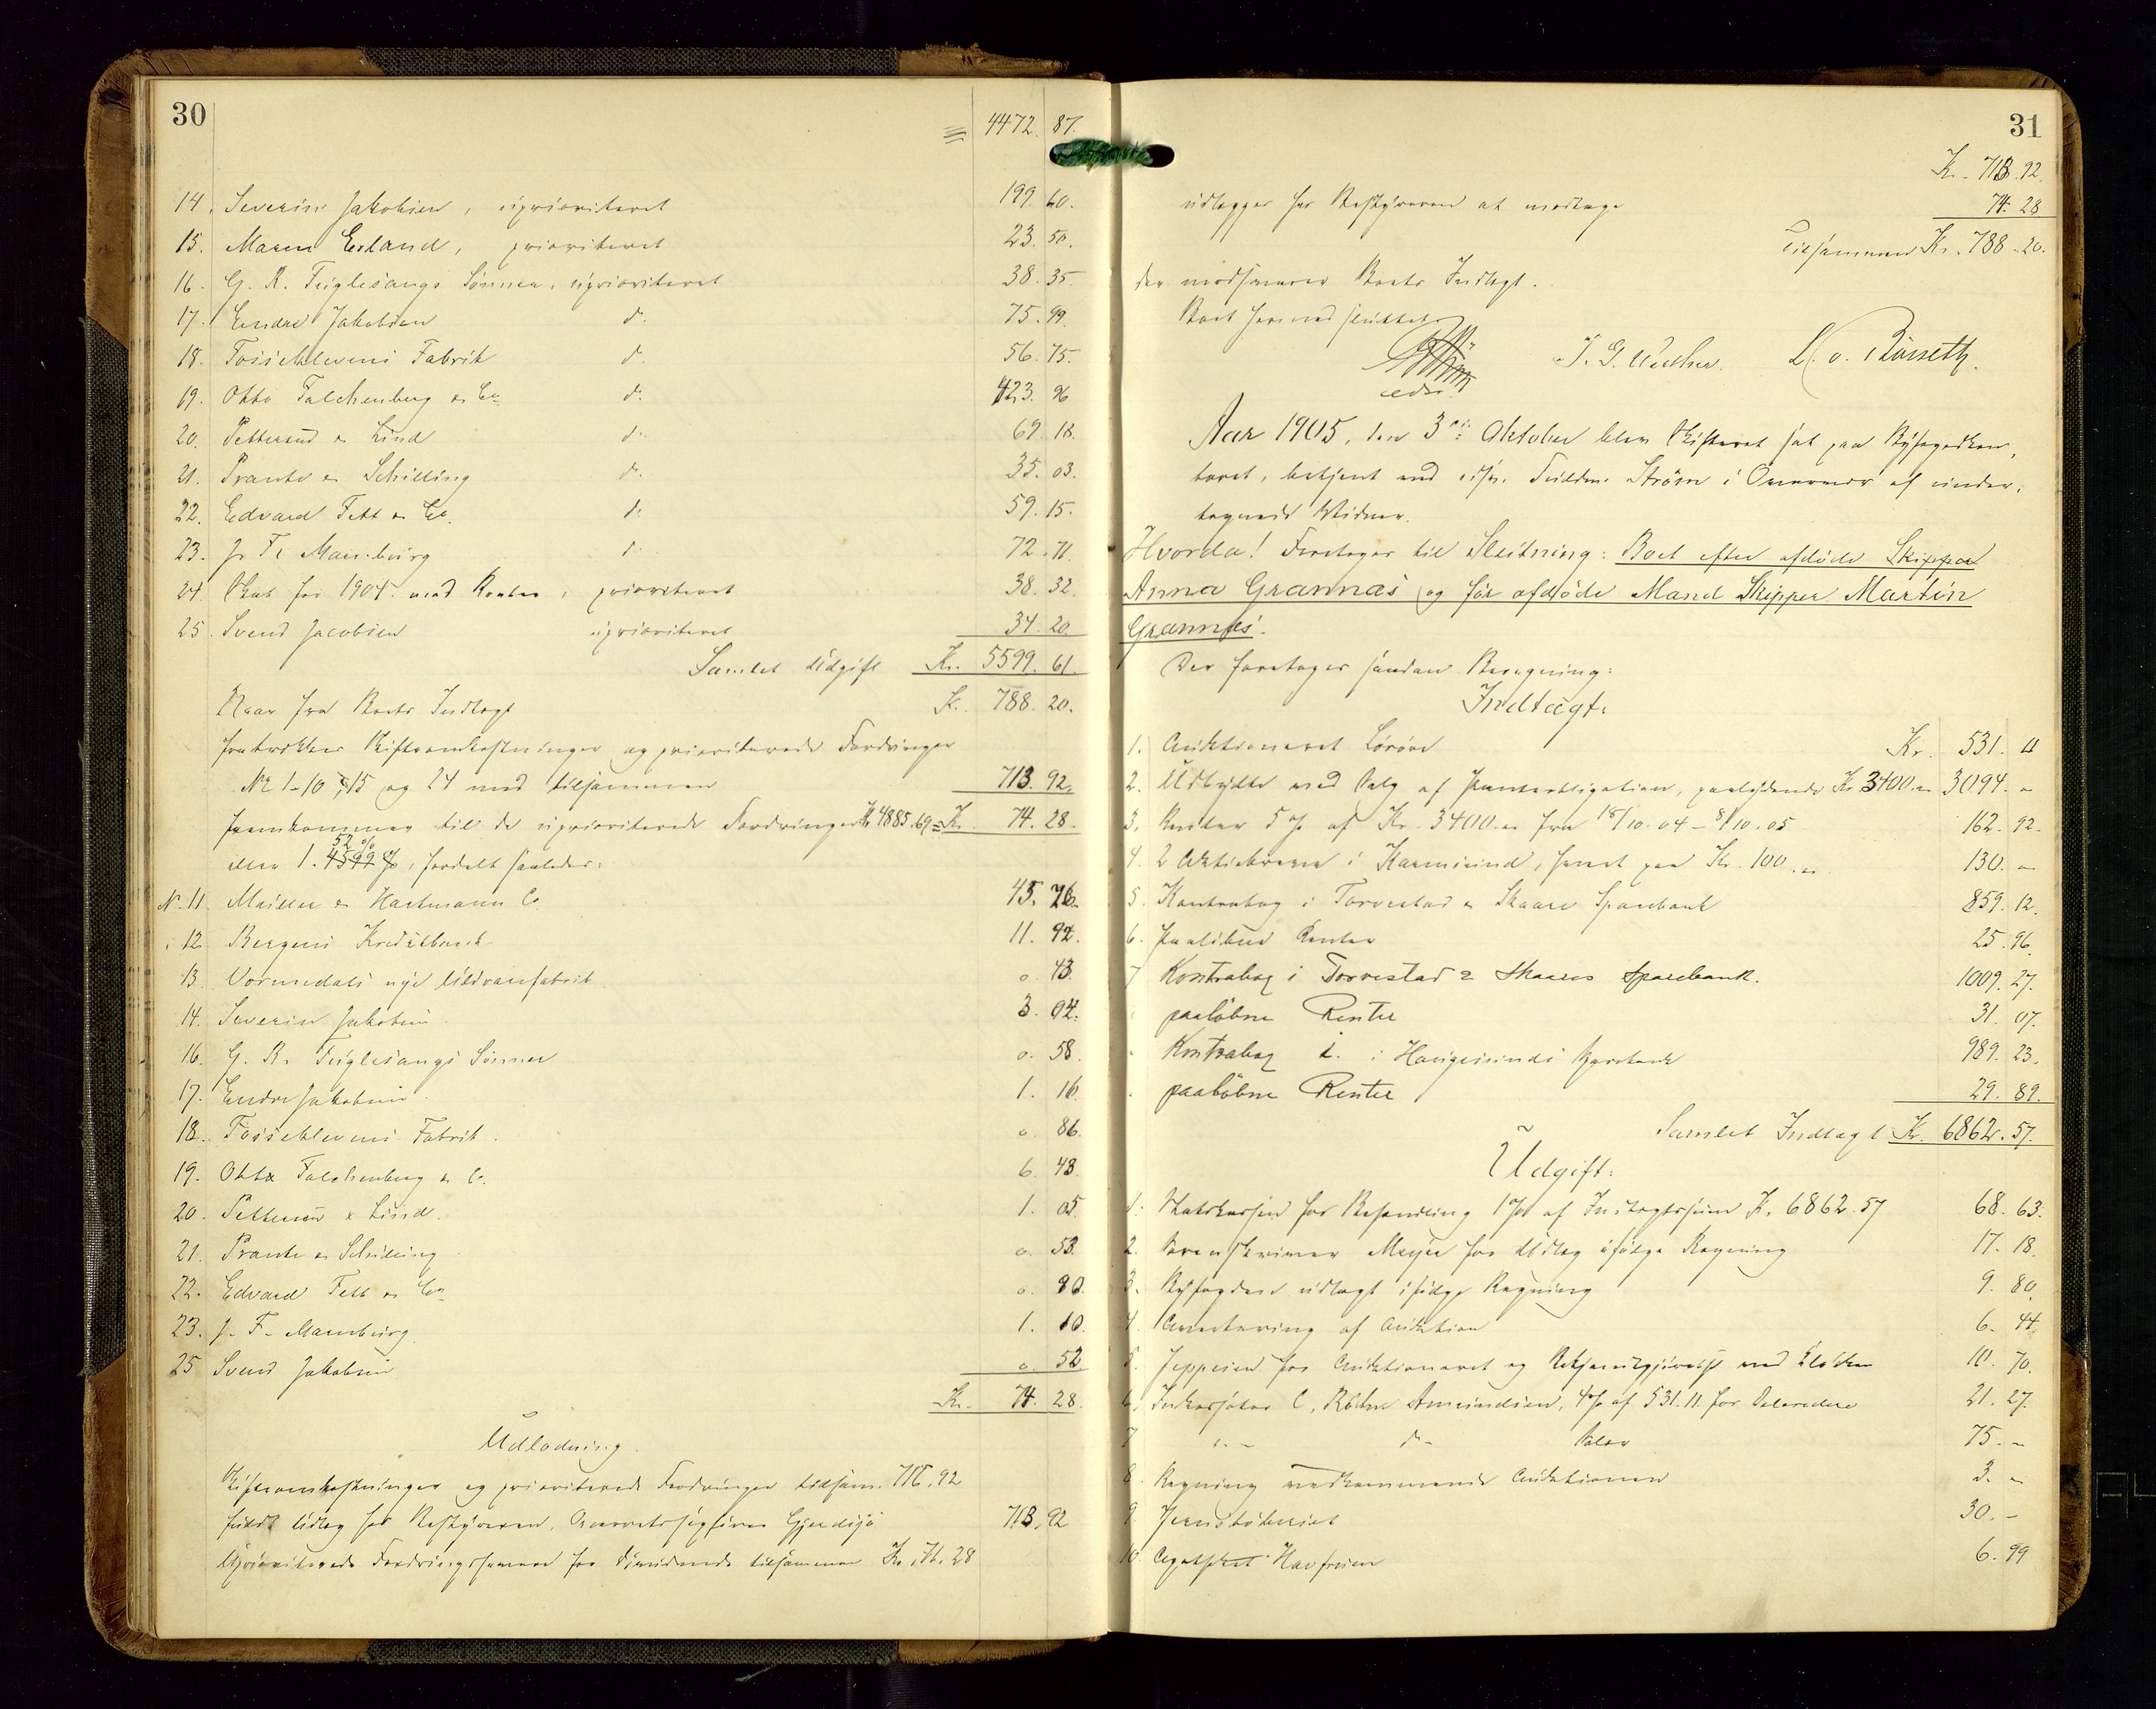 30
= 4472. 87.
14. Severin Jakobsen, uprioriteret 199. 60.
15. Maren Erland, prioriteret 23. 50.
16. G. R. Fuglesangs Sønner, uprioriteret 38. 35.
17. Endre Jakobsen d: 75. 99.
18. Fossiklevens Fabrik d: 56. 75.
19. Otto Falchenberg & Co d: 423. 96
20. Pettersen & Lind d: 69. 18.
21. Prante & Schilling d: 35. 03.
22. Edvard Fett & Co. d: 59. 15.
23. J. F. Mamburg d: 72. 71.
24. Skat for 1904 med Renter, prioriteret 38. 32.
25. Svend Jacobsen uprioriteret 34. 20.
Samlet Udgift Kr. 5599. 61.
Naar fra Boets Indtægt K. 788. 20.
fratrækkes Skifteomkostninger og prioriterede Fordringer
No 1-10, 15 og 24 med tilsammen 713. 92.
fremkommer til de uprioriterede Fordringer Kr 4885.69 = K. 74. 28.
eller 1.52 % fordelt saaledes:
N. 11 Müller & Hartmann Co. 45. 76.
12 Bergens Kreditbank 11. 92.
13 Vormedals nye Uldvarefabrik 0. 43.
14. Severin Jakobsen 3. 04.
16. G. R. Fuglesangs Sønner 0. 58.
17. Endre Jakobsen 1. 16.
18. Fossiklevens Fabrik. 0. 86.
19. Otto Falchenberg & C. 6. 43.
20. Pettersen & Lind. 1. 05.
21. Prante & Schilling 0. 53.
22. Edvard Fett & Co 0. 90.
23. J. F. Mamburg. 1. 10.
25 Svend Jakobsen 0. 52
Kr. 74. 28.
Udlodning.
Skifteomkostninger og prioriterede Fordringer tilsam. 713.92
fuldt Udlæg hos Bestyreren, Overretssagfører Gjerdsjø 713. 92
Uprioriterede Fordringshavere for Dividende tilsammen Kr. 74.28
31
K. 713. 92.
udlægges hos Bestyreren at modtage 74. 28
Tilsammen Kr. 788. 20.
der modsvarer Boets Indtægt.
Boet hermed sluttet
J. G. Wether. L. v. Rosseth.
edsv.
Aar 1905, den 3die Oktober blev Skifteret sat paa Byfogedkon-
toret, betjent ved edsv. Fuldm. Strøm i Overvær af under-
tegnede Vidner.
Hvorda! Foretoges til Slutning: Boet efter afdøde Skipper
Anna Grannæs og før afdøde Mand Skipper Martin
Grannæs.
Der foretoges saadan Beregning:
Indtægt:
1. Auktionen over Løsøre Kr. 531. 11
2. Udbytte ved Salg af Panteobligation, paalydende Kr 3400.- 3094. -
3. Renter 5% af Kr. 3400.- fra 18/10.04 - 8/10.05 162. 92.
4. 2 Aktiebreve i Karmsund, hvert paa Kr. 100.- 130. -
5. Kontrabog i Torvestad & Skaare Sparebank 859. 12.
6. Paaløbne Renter 25. 96.
7 Kontrabog i Torvestad & Skaares Sparebank. 1009. 27.
paaløbne Renter 31. 07.
Kontrabog i Haugesunds Sparebank 989. 23.
paaløbne Renter 29. 89.
Samlet Indtægt K. 6862. 57.
Udgift:
1. Statskassen for Behandling 1% af Indtægtssum K. 6862.57 68. 63.
2. Sorenskriver Meyer for Udlæg ifølge Regning 17. 18.
3. Byfogden udlagt ifølge Regning 9. 80.
4. Avertering af Auktion 6. 44.
5. Jeppesen for Auktionen og Bekjendtgjørelse ved Klokken 10. 70.
6. Inkassator C. Røthe Amundsen, 4% af 531.11 for 21. 27.
7 d- Salær 75. -
8. Regning vedkommende Auktionen 3. -
9. 30. -
10. Havfruen 6. 99